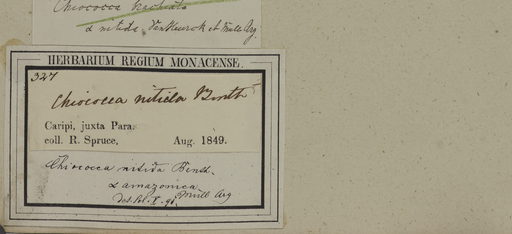 Chiococca brachiata
α nitida. Van Heurck et Müll Arg.
HERBARIUM REGIUM MONACENSE.
327
Chiococca nitida Benth
Caripi, juxta Para.
coll. R. Spruce, Aug. 1849.
Chiococca nitida Benth.
α amazonica
Müll Arg